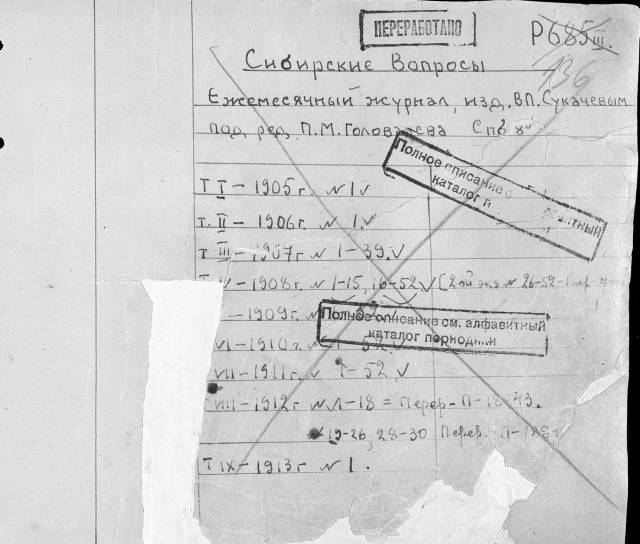 ПЕРЕРАБОТАНО
Р685III.
136
Сибирские Вопросы
Ежемесячный журнал, изд. В.П. Сукачевым
под ред. П.М. Головачева СПб 8°
Полное описание с алфавитный
каталог п
Т I – 1905 г. № 1 √
т. II – 1906 г. № 1. √
т III – 1907 г. № 1–39. √
1908 г. № 1–15, 16–52 √ (2ой экз № 26–52
1909 г. №
Полное описание см. алфавитный
каталог периодики
VI – 1910 г. 52. √
VII – 1911 г. № 1–52. √
VIII – 1912 г. № 1–18 = Перер–П–18843.
№ 19–26, 28–30 Перер.–П–188
Т IX – 1913 г. № 1.